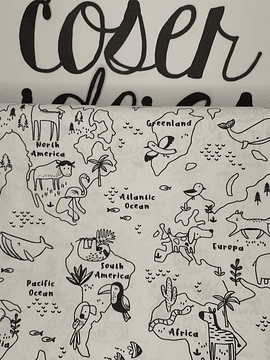 coser
Greenland
North
America
Atlantic
Ocean
Europa
South
America
Pacific
Ocean
Africa